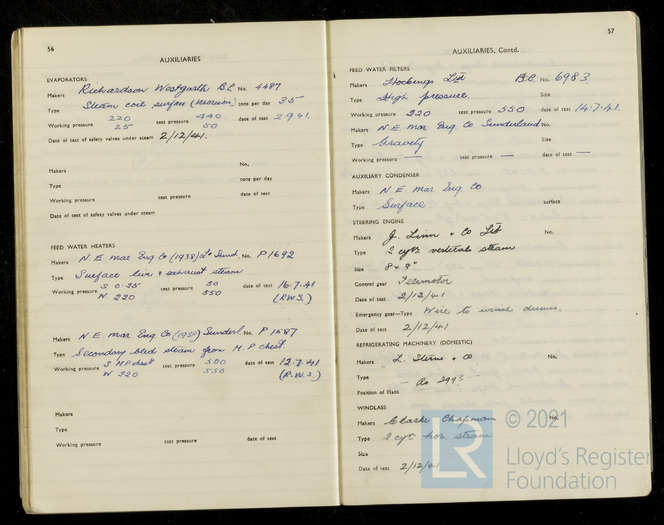 56
AUXILIARIES
EVAPORATORS
Makers Richardson Westgarth B.C. No. 4487
Type Steam coil surface (Morison) tons per day 35
Working pressure 220 test pressure 440 date of test 2.9.41.
25 50
Date of test of safety valves under steam 2/12/41.
Makers No.
Type tons per day
Working pressure test pressure date of test
Date of test of safety valves under steam
FEED WATER HEATERS
Makers N.E. Mar Eng Co (1938) Ltd Sund. No. P1692
Type Surface live & exhaust steam
Working pressure S 0-25 test pressure 50 date of test 16.7.41
W 220 550 (R.W.S.)
Makers N.E. Mar. Eng. Co (1938) Sunderl. No. P1587
Type Secondary bled steam from M.P. chest
Working pressure S MP chest test pressure 500 date of test 12.7.41
W 220 550 (R.W.S.)
Makers
Type
Working pressure test pressure date of test
57
AUXILIARIES, Contd.
FEED WATER FILTERS
Makers Hockings Ltd B.C. No. 6983
Type High pressure Size
Working pressure 220 test pressure 550 date of test 14.7.41.
Makers N.E. Mar. Eng. Co Sunderland No.
Type Gravity Size
Working pressure — test pressure — date of test —
AUXILIARY CONDENSER
Makers N.E. Mar Eng. Co
Type Surface. surface
STEERING ENGINE
Makers J. Linn & Co Ltd No.
Type 2 cyls verticals steam
Size 8 × 8"
Control gear Telemotor
Date of test 2/12/41
Emergency gear—Type Wire to winch drums.
Date of test 2/12/41
REFRIGERATING MACHINERY (DOMESTIC)
Makers L. Sterne & Co No.
Type — As 2993
Position of Plant
WINDLASS
Makers Clarke Chapman No.
Type 2 cyls hor steam
Size
Date of test 2/12/41
LR
© 2021
Lloyd's Register
Foundation